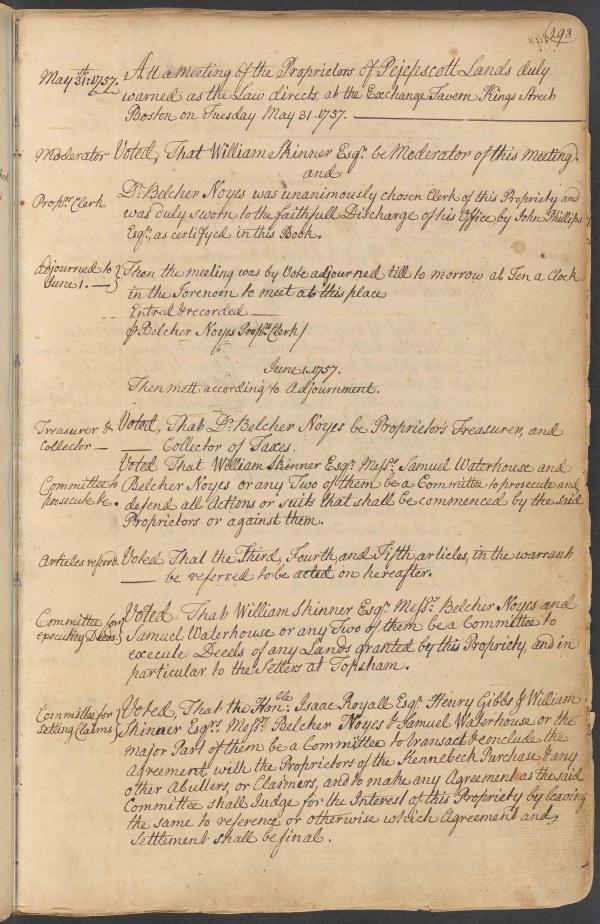 293
May 31st: 1757. Att a meeting of the Proprietors of Pejepscott Lands duly
warned as the Law directs, at the Exchange Tavern Kings Street
Boston on Tuesday May 31. 1757.
Moderator Voted, That William Skinner Esqr. be Moderator of this Meeting.
and
Propr. Clerk Dr. Belcher Noyes was unanimously chosen Clerk of this Propriety and
was duly sworn to the faithfull Discharge of his Office by John Phillips
Esqr. as certifyed in this Book.
Adjourned to } Then the meeting was by Vote adjourned till to morrow at Ten a Clock
June 1. — } in the Forenoon to meet at this place
Entred & recorded —
p Belcher Noyes Propr. Clerk /
June 1. 1757.
Then mett according to Adjournment.
Treasurer & Voted, That Dr. Belcher Noyes be Proprietors Treasurer, and
Collector — — Collector of Taxes.
Voted That William Skinner Esqr. Messrs. Samuel Waterhouse and
Committee to Belcher Noyes or any Two of them be a Committee to prosecute and
prosecute &c. defend all Actions or suits that shall be commenced by the said
Proprietors or against them.
Articles referd. Voted That the Third, Fourth and Fifth articles, in the warrant
— be referred to be acted on hereafter.
Committee for } Voted That William Skinner Esqr. Messrs. Belcher Noyes and
executing Deeds } Samuel Waterhouse or any Two of them be a Committee to
execute Deeds of any Lands granted by this Propriety, and in
particular to the Setlers at Topsham.
Committee for } Voted, That the Honble. Isaac Royall Esqr. Henry Gibbs & William
settling Claims } Skinner Esqrs. Messrs. Belcher Noyes & Samuel Waterhouse or the
major Part of them be a Committee to transact & conclude the
Agreement with the Proprietors of the Kennebeck Purchase & any
other Abutters, or Claimers, and to make any Agreement as the said
Committee shall Judge for the Interest of this Propriety by leaving
the same to reference or otherwise which Agreement and
Settlement shall be final.